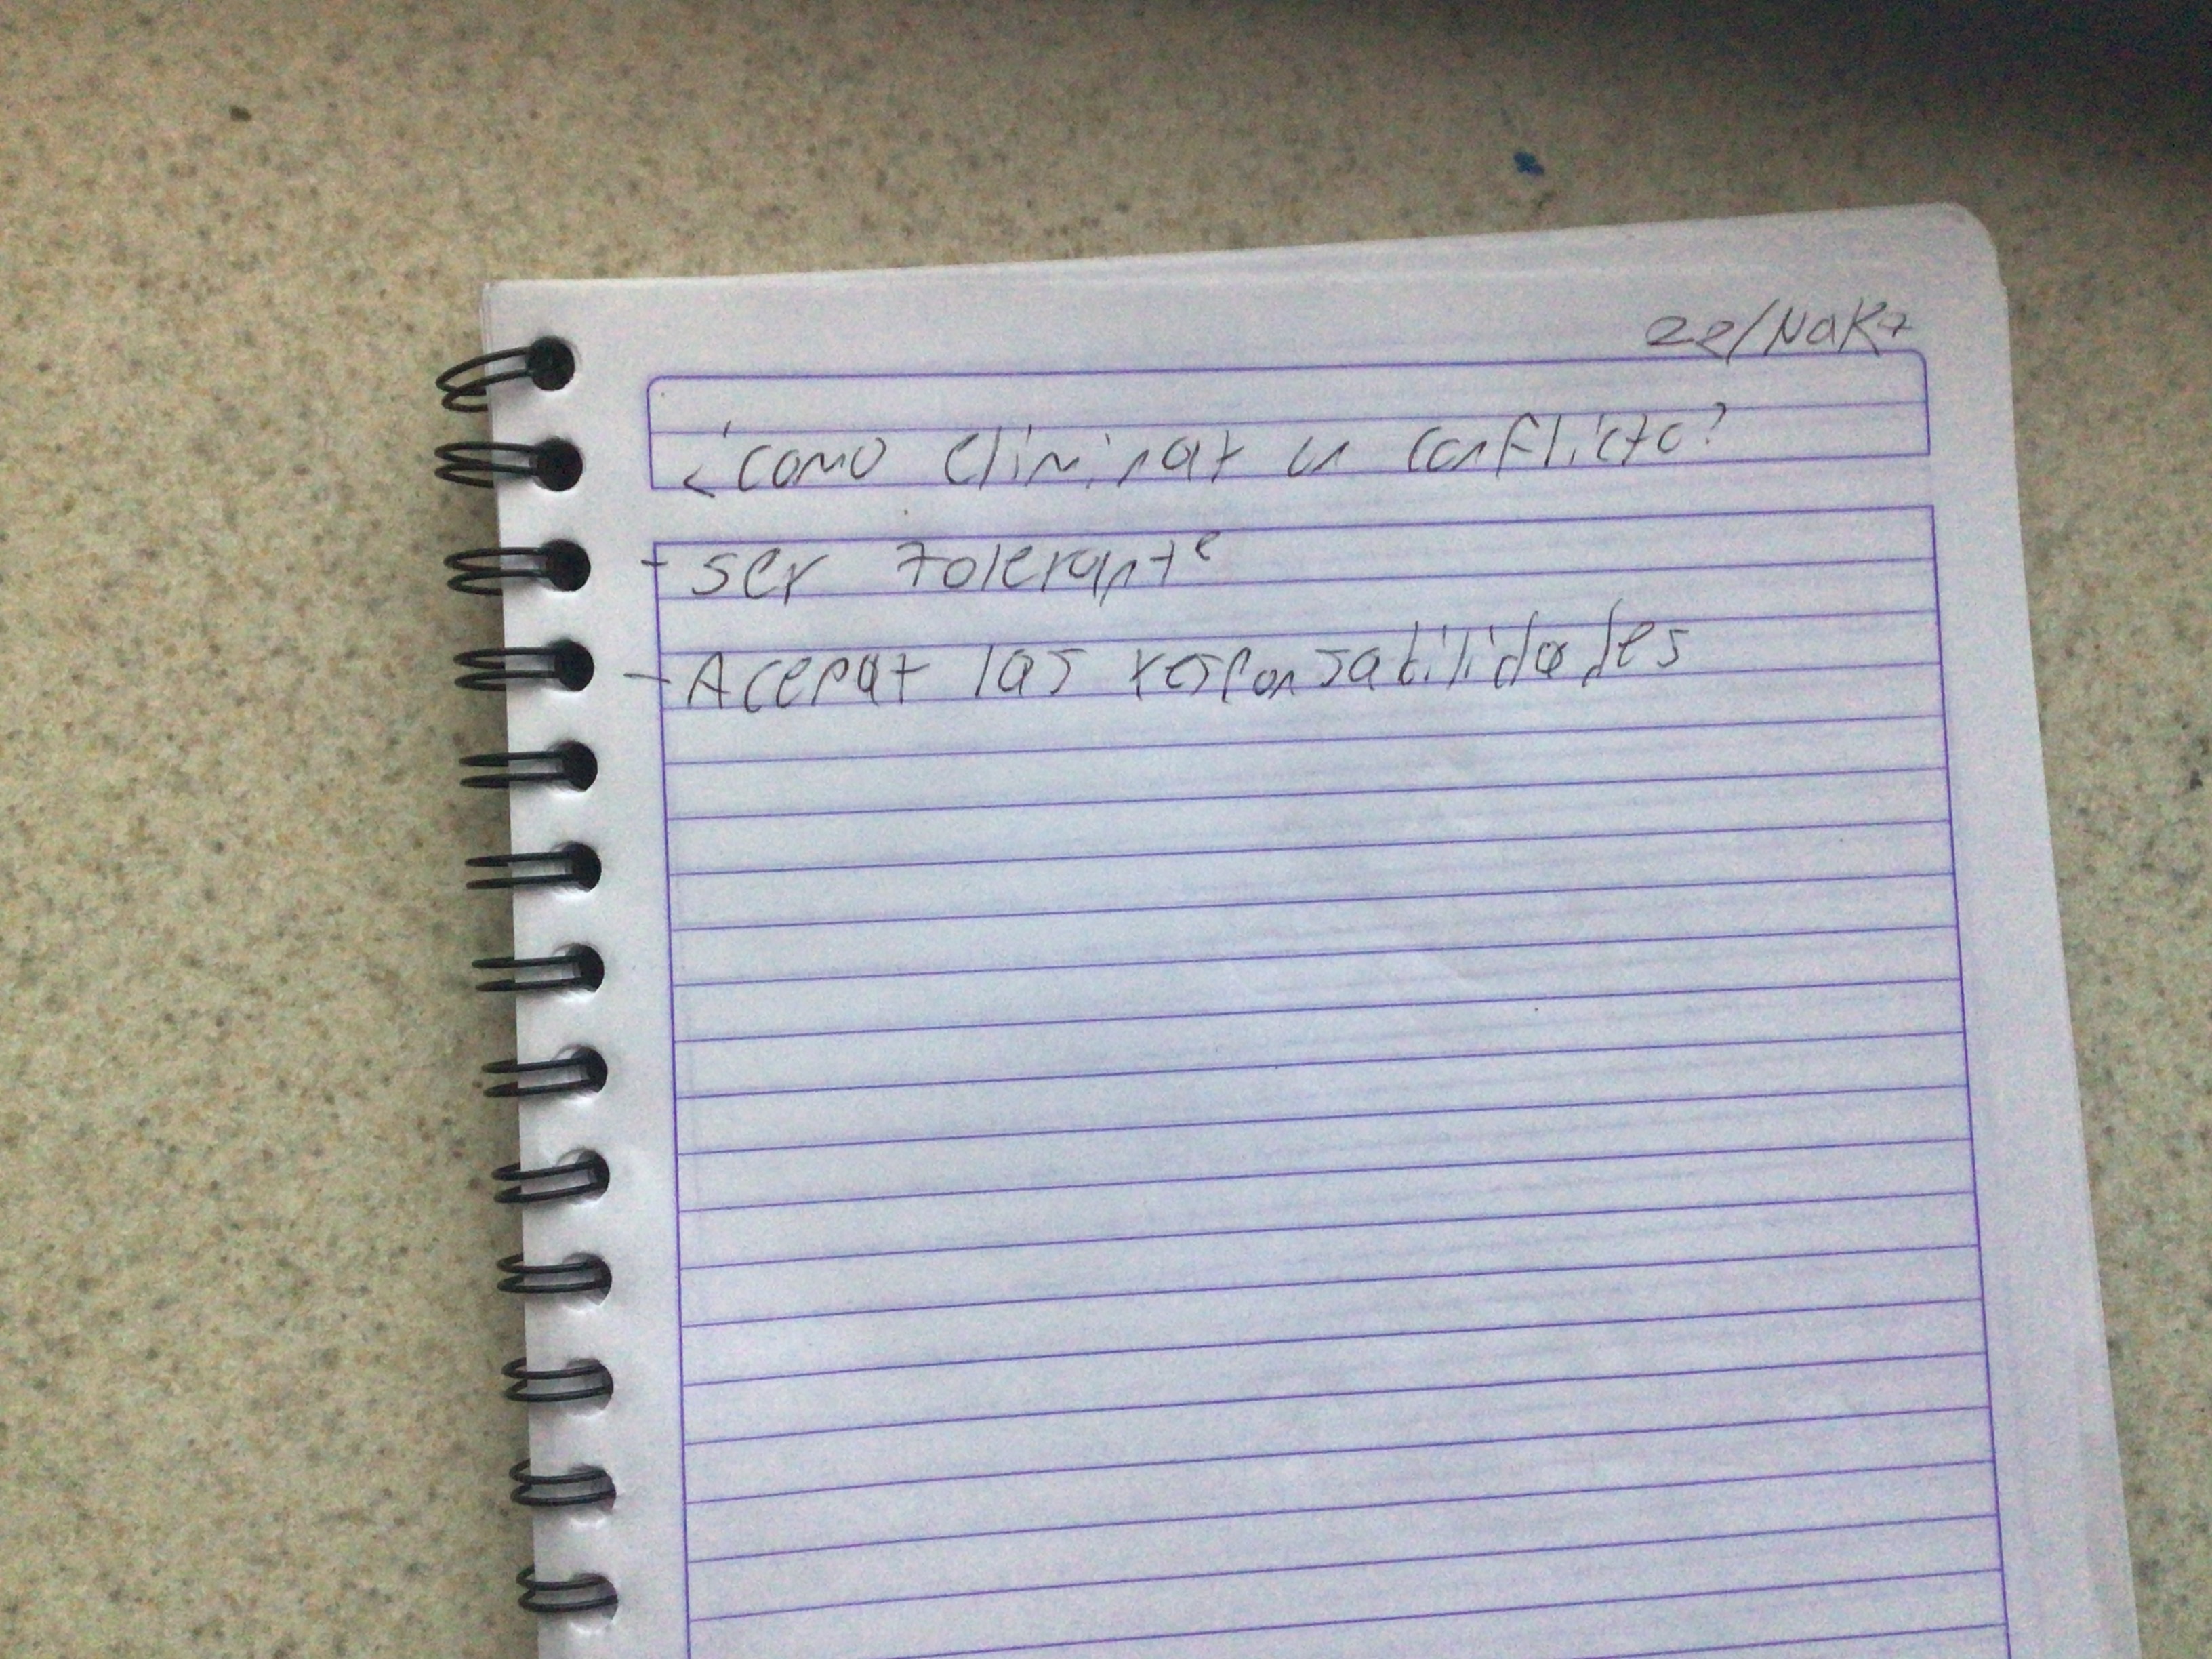 22/Mar7
¿como eliminar un conflicto?
- ser tolerante
- Acepar las responsabilidades